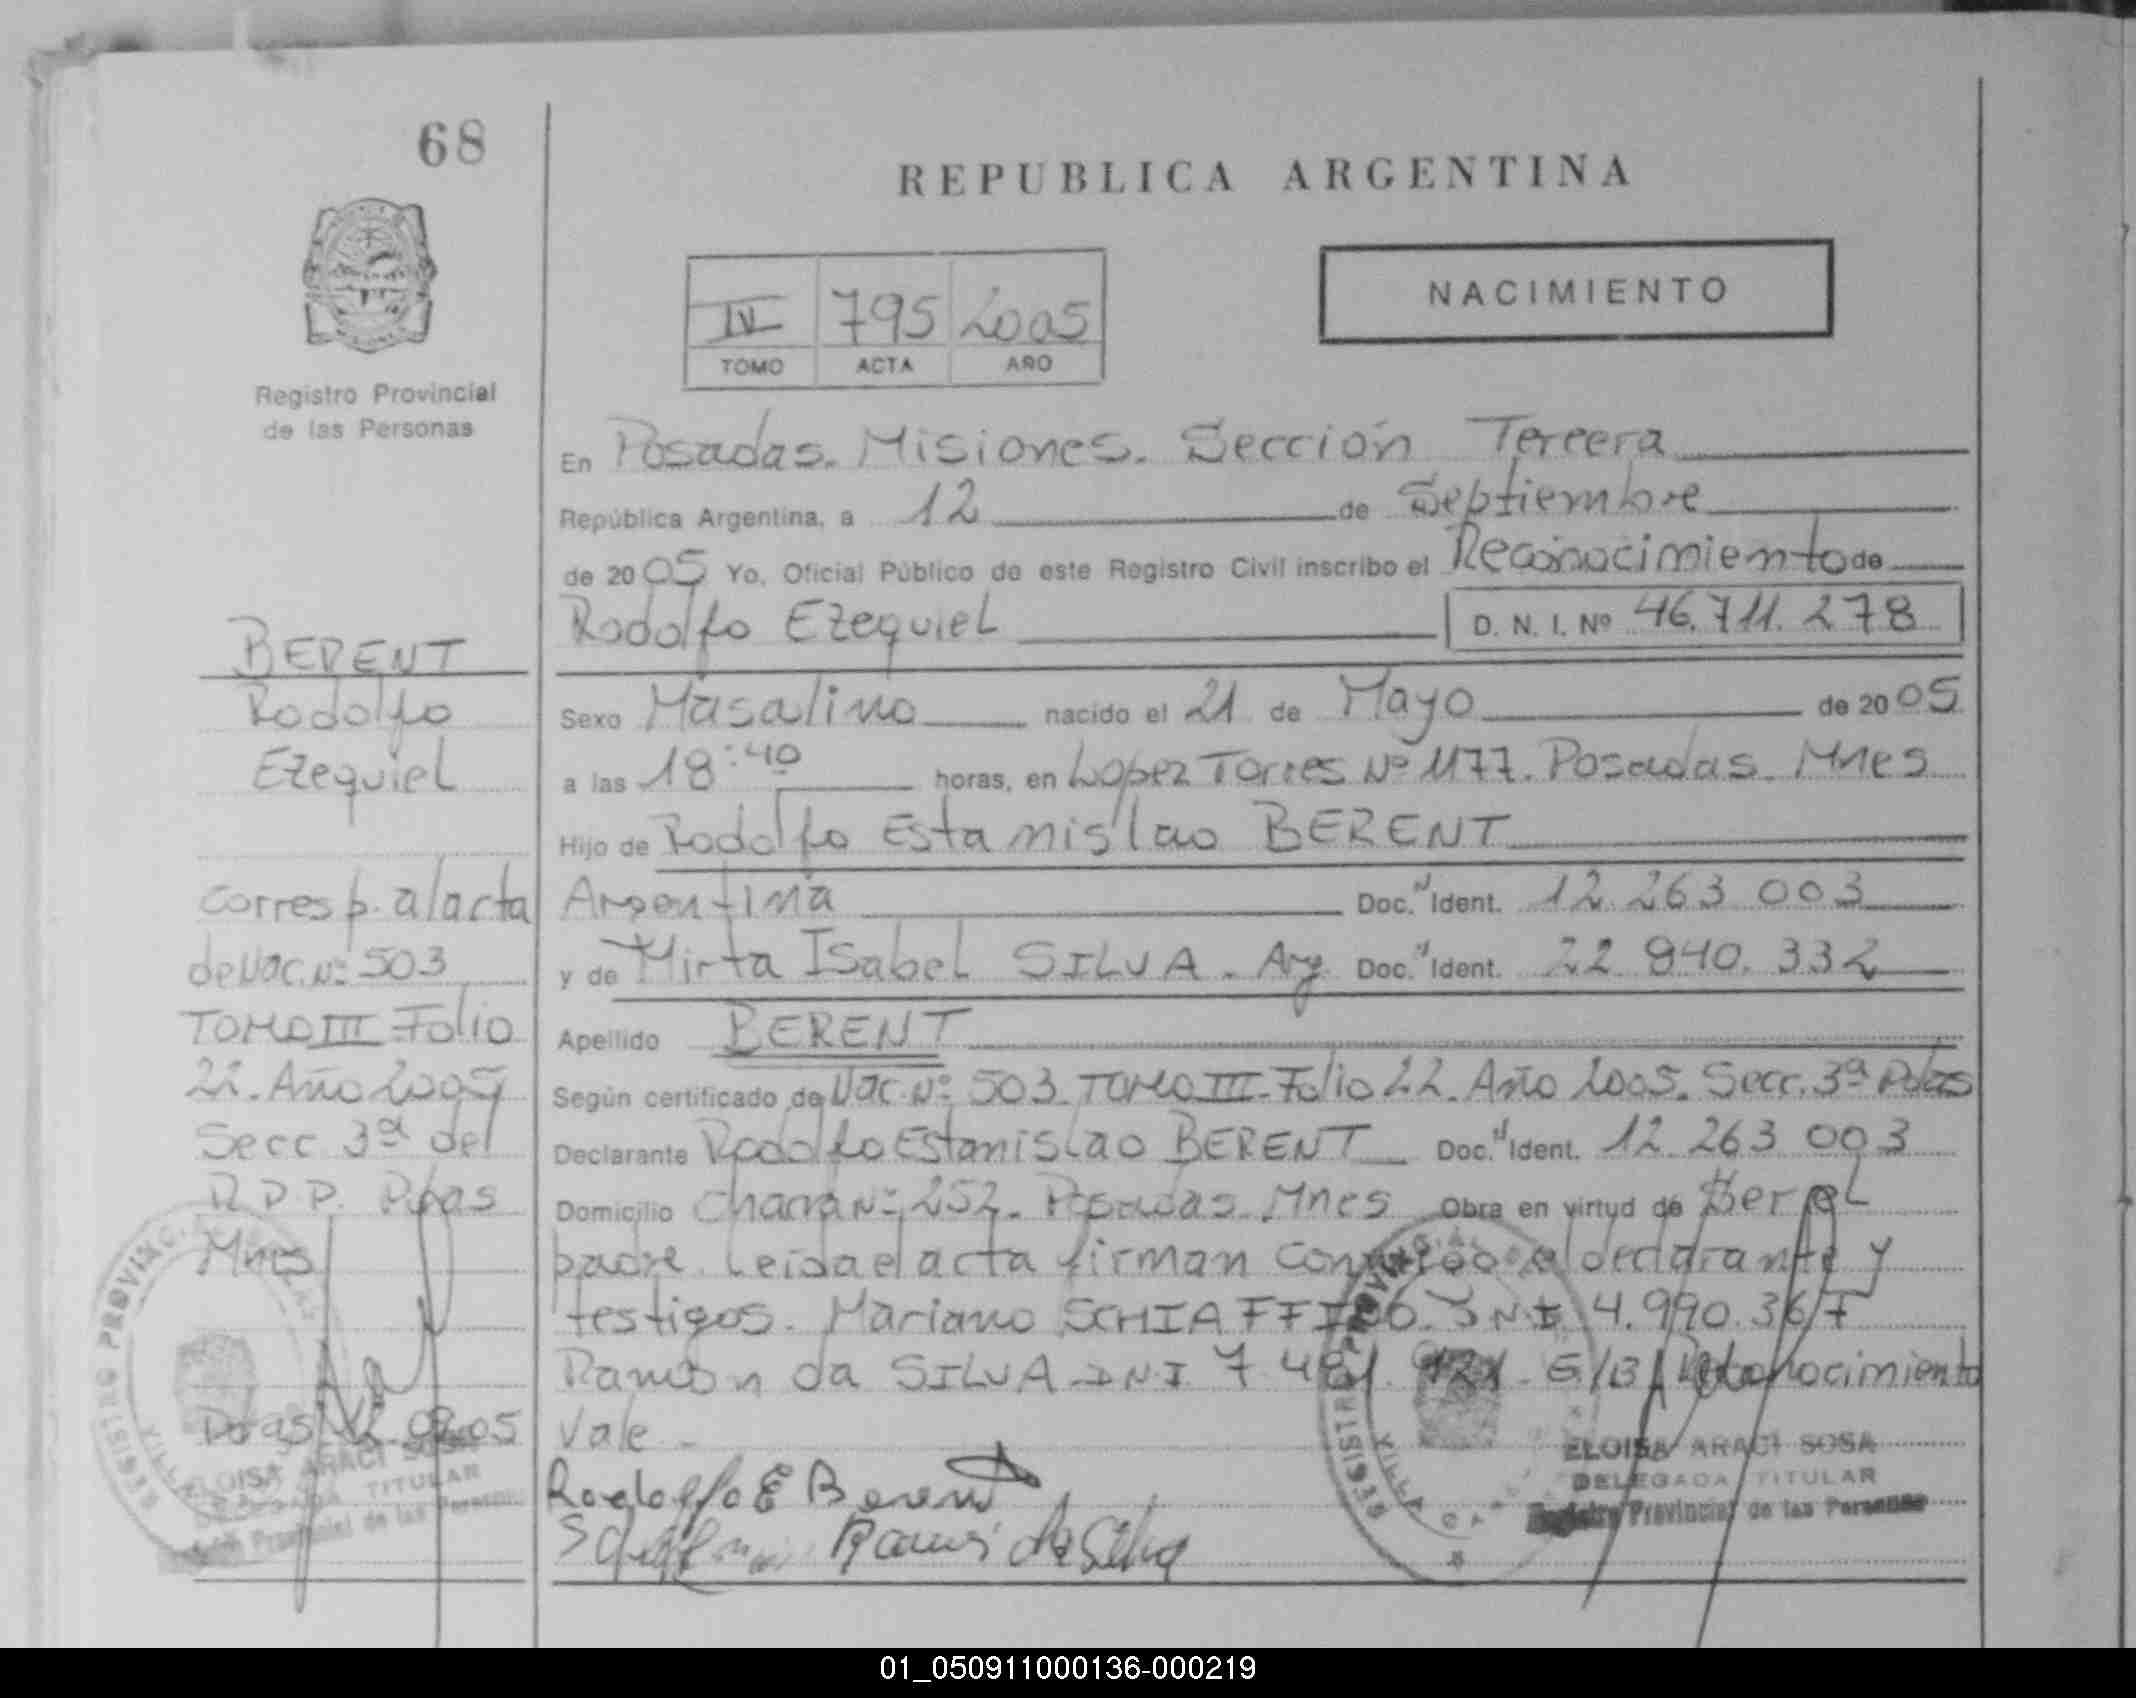 68
REPUBLICA ARGENTINA
NACIMIENTO
IV 795 2005
TOMO ACTA AÑO
Registro Provincial
de las Personas
En Posadas. Misiones. Sección Tercera
República Argentina, a 12 de Septiembre
de 2005 Yo, Oficial Público de este Registro Civil inscribo el Reconocimiento de
Rodolfo Ezequiel D. N. I. Nº 46.711.278
Sexo Masculino nacido el 21 de Mayo de 2005
a las 18:40 horas, en Lopez Torres Nº 1177. Posadas. Mnes
Hijo de Rodolfo Estanislao BERENT
Argentina Doc. Ident. 12.263.003
y de Mirta Isabel SILVA. Arg Doc. Ident. 22.940.332
Apellido BERENT
Según certificado de Nac. Nº 503. TOMO III-Folio 22. Año 2005. Secc. 3ª Pdas
Declarante Rodolfo Estanislao BERENT Doc. Ident. 12.263.003
Domicilio Chacra Nº 252. Posadas. Mnes Obra en virtud de Ser el
padre. Leida el acta firman conmigo el declarante y
testigos. Mariano SCHIAFFINO. DNI 4.990.367
Ramón da SILVA DNI 7.481. E/B/ Reconocimiento
Vale
Rodolfo E Berent
Ramon da Silva
ELOISA ARACI SOSA
DELEGADA TITULAR
Registro Provincial de las Personas
BERENT
Rodolfo
Ezequiel
Corresp. al acta
de Nac. Nº 503
TOMO III Folio
22. Año 2005
Secc 3ª del
R.P.P. Pdas
Mnes
Pdas 12.09.05
ELOISA ARACI SOSA
DELEGADA TITULAR
Registro Provincial de las Personas
01_050911000136-000219